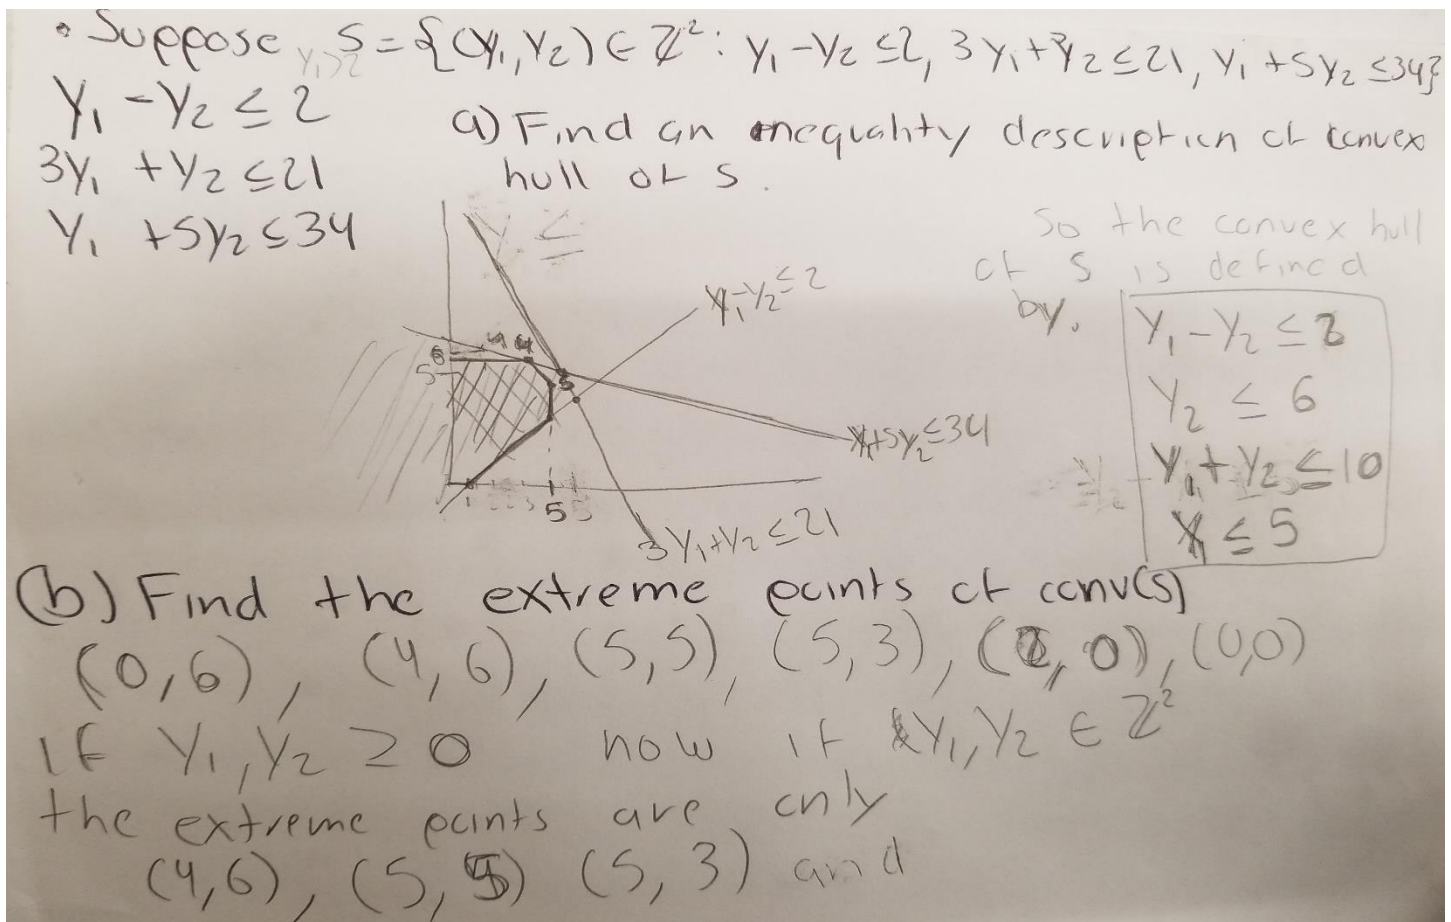 • Suppose S = {(Y₁, Y₂) ∈ ℤ² : Y₁ - Y₂ ≤ 2, 3Y₁ + Y₂ ≤ 21, Y₁ + 5Y₂ ≤ 34}
Y₁ - Y₂ ≤ 2
3Y₁ + Y₂ ≤ 21
Y₁ + 5Y₂ ≤ 34
a) Find an inequality description of convex
hull of S.
Y₁ - Y₂ ≤ 2
6
5
4
5
Y₁ + 5Y₂ ≤ 34
1
5
3Y₁ + Y₂ ≤ 21
So the convex hull
of S is defined
by.
Y₁ - Y₂ ≤ 2
Y₂ ≤ 6
Y₁ + Y₂ ≤ 10
Y₁ ≤ 5
(b) Find the extreme points of conv(S)
(0,6), (4,6), (5,5), (5,3), (2,0), (0,0)
if Y₁, Y₂ ≥ 0 now if Y₁, Y₂ ∈ ℤ²
the extreme points are only
(4,6), (5,5) (5,3) and